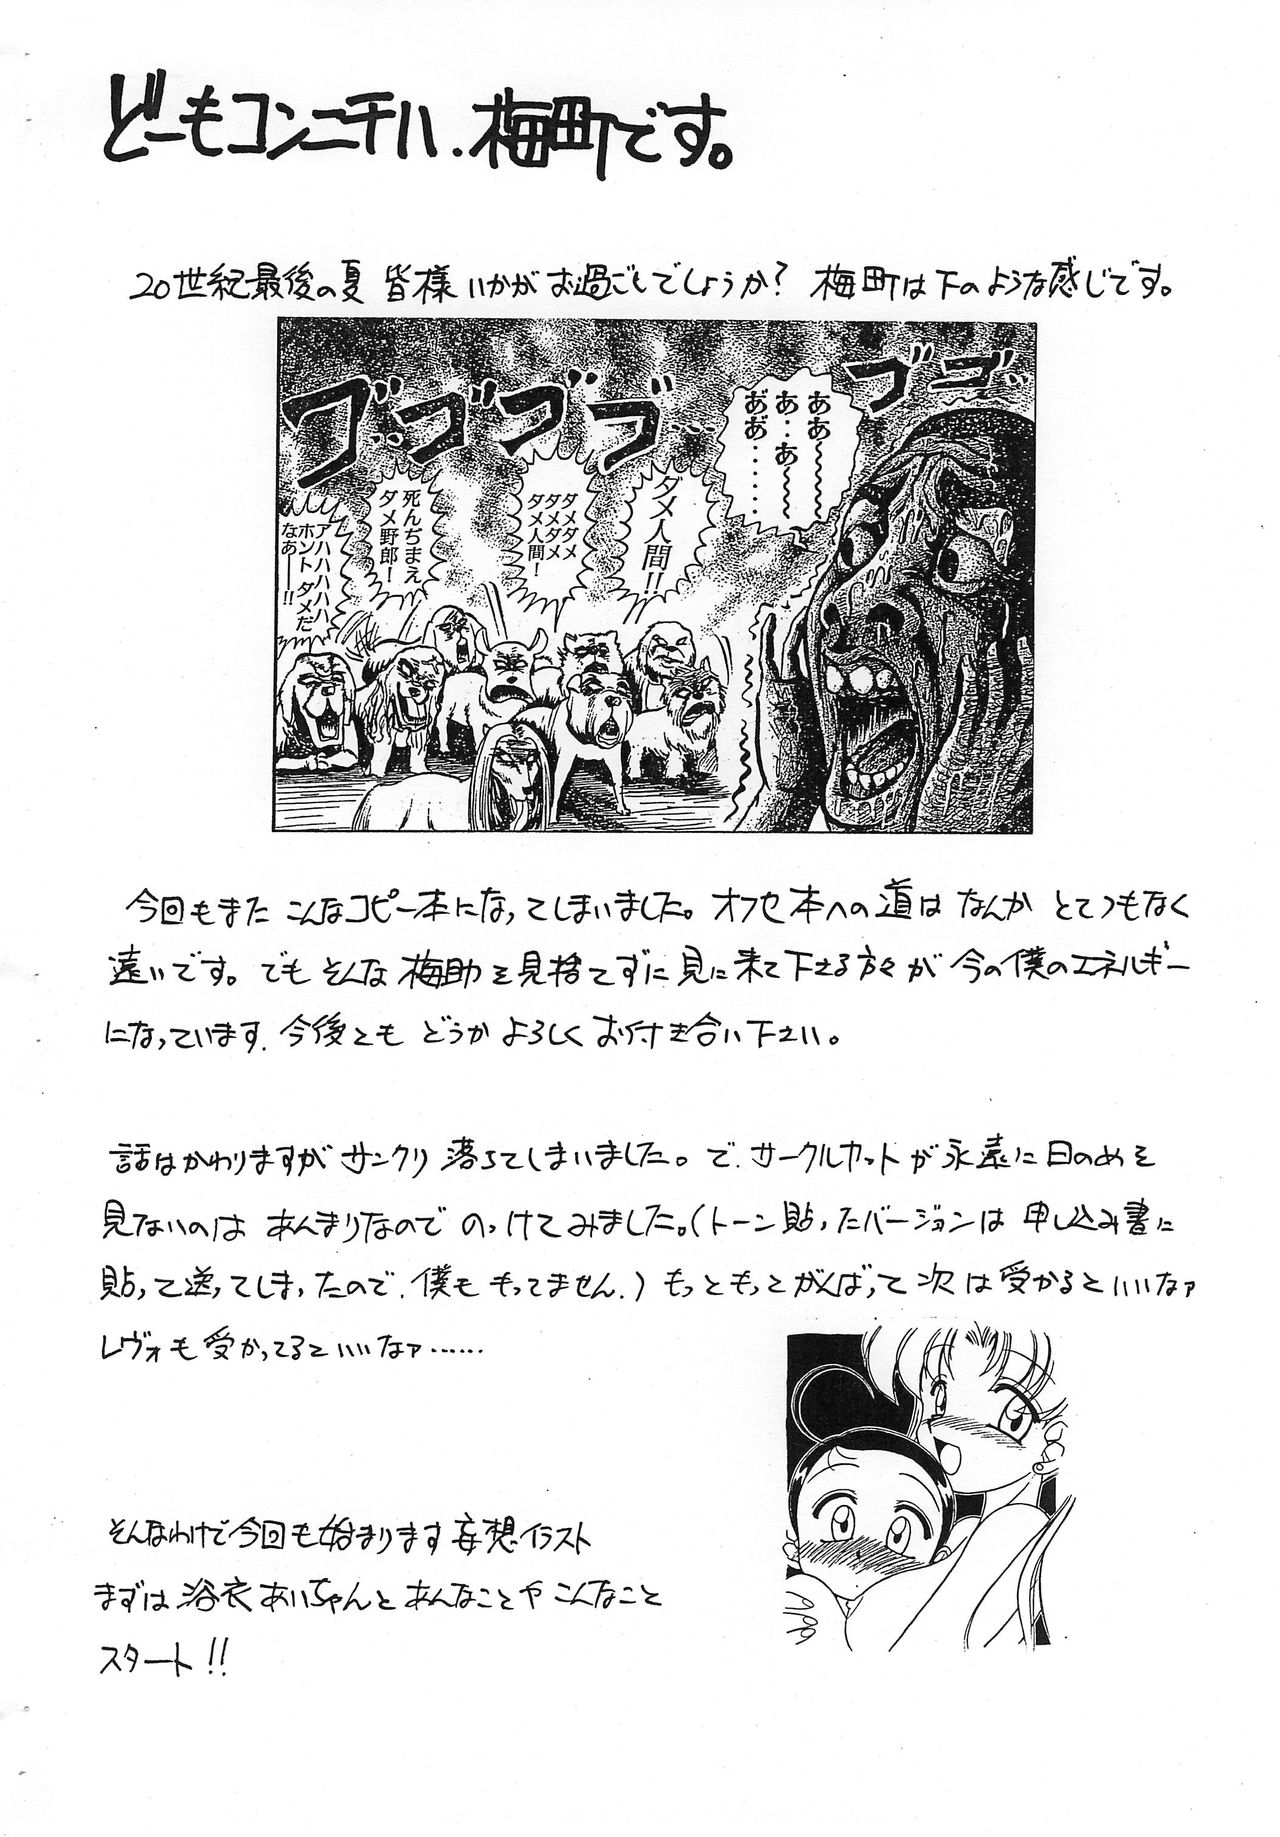 どーもコンニチハ、梅町です。
20世紀最後の夏 皆様いかがお過ごしでしょうか? 梅町は下のような感じです。
ゴゴ‥
ああ〜〜〜
あ‥あ〜〜
あ゙あ゙‥‥‥
ゴゴゴゴ‥‥
ダメ人間!!
ダメダメ
ダメダメ
ダメ人間!
死んぢまえ
ダメ野郎!
アハハハハハ
ホントダメだ
なあ——!!
今回もまた こんなコピー本になってしまいました。オフセ本への道は なんか とてつもなく
遠いです。でも そんな 梅助を見捨てずに見に来て下さる方々が 今の僕のエネルギー
になっています。今後とも どうか よろしく お付き合い下さい。
話はかわりますが サンクリ 落ちてしまいました。で、サークルカットが永遠に日のめを
見ないのは あんまりなので のっけてみました。(トーン貼ったバージョンは 申し込み書に
貼って送ってしまったので、僕も もってません。) もっともっとがんばって 次は受かるといいなァ
レヴォも受かってるといいなァ……
そんなわけで今回も始まります妄想イラスト
まずは 浴衣あいちゃんと あんなことや こんなこと
スタート!!